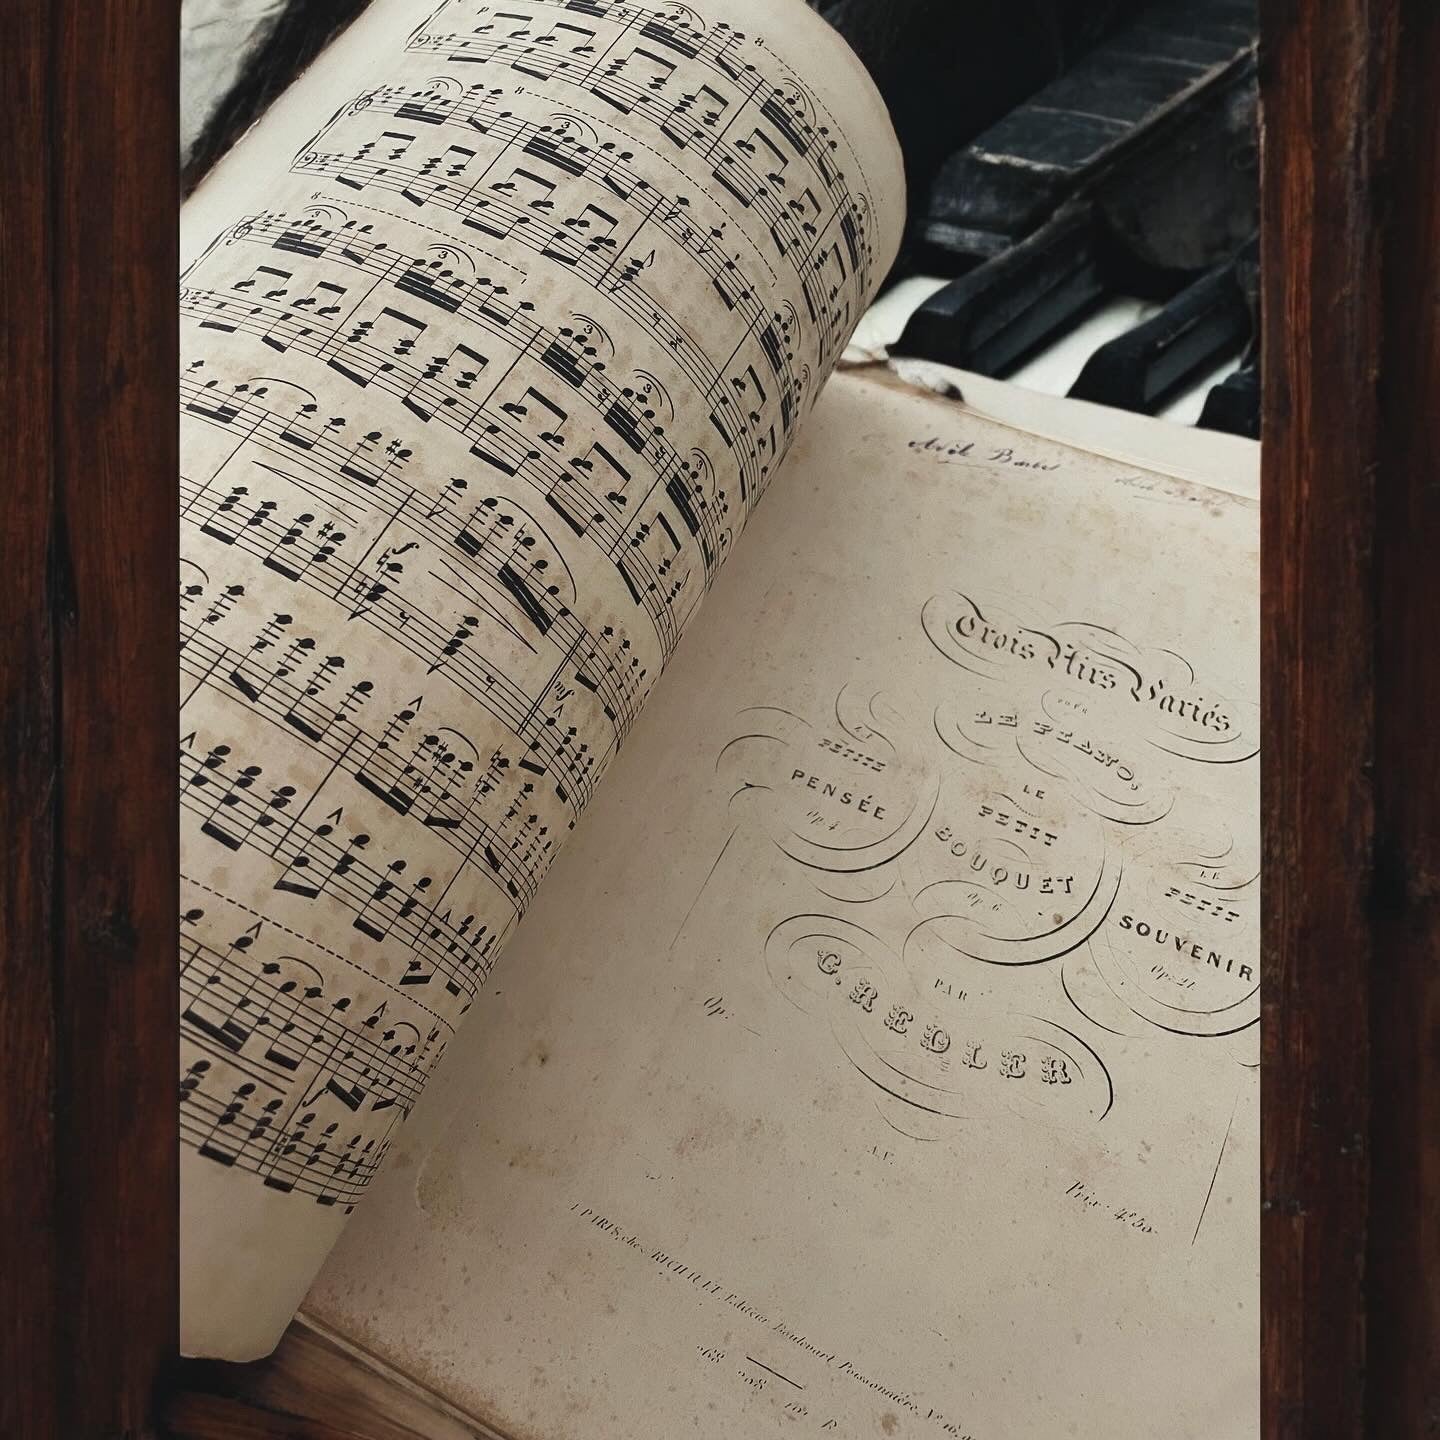 Trois Airs Variés
POUR
LE PIANO,
LA
PETITE
PENSÉE
Op. 4
LE
PETIT
BOUQUET
Op. 6
LE
PETIT
SOUVENIR
Op: 21.
PAR
G. REDLER
Op:
A.V.
Prix: 4f 50
A PARIS, chez RICHAULT, Editeur Boulevart Poissonnière, No 16,